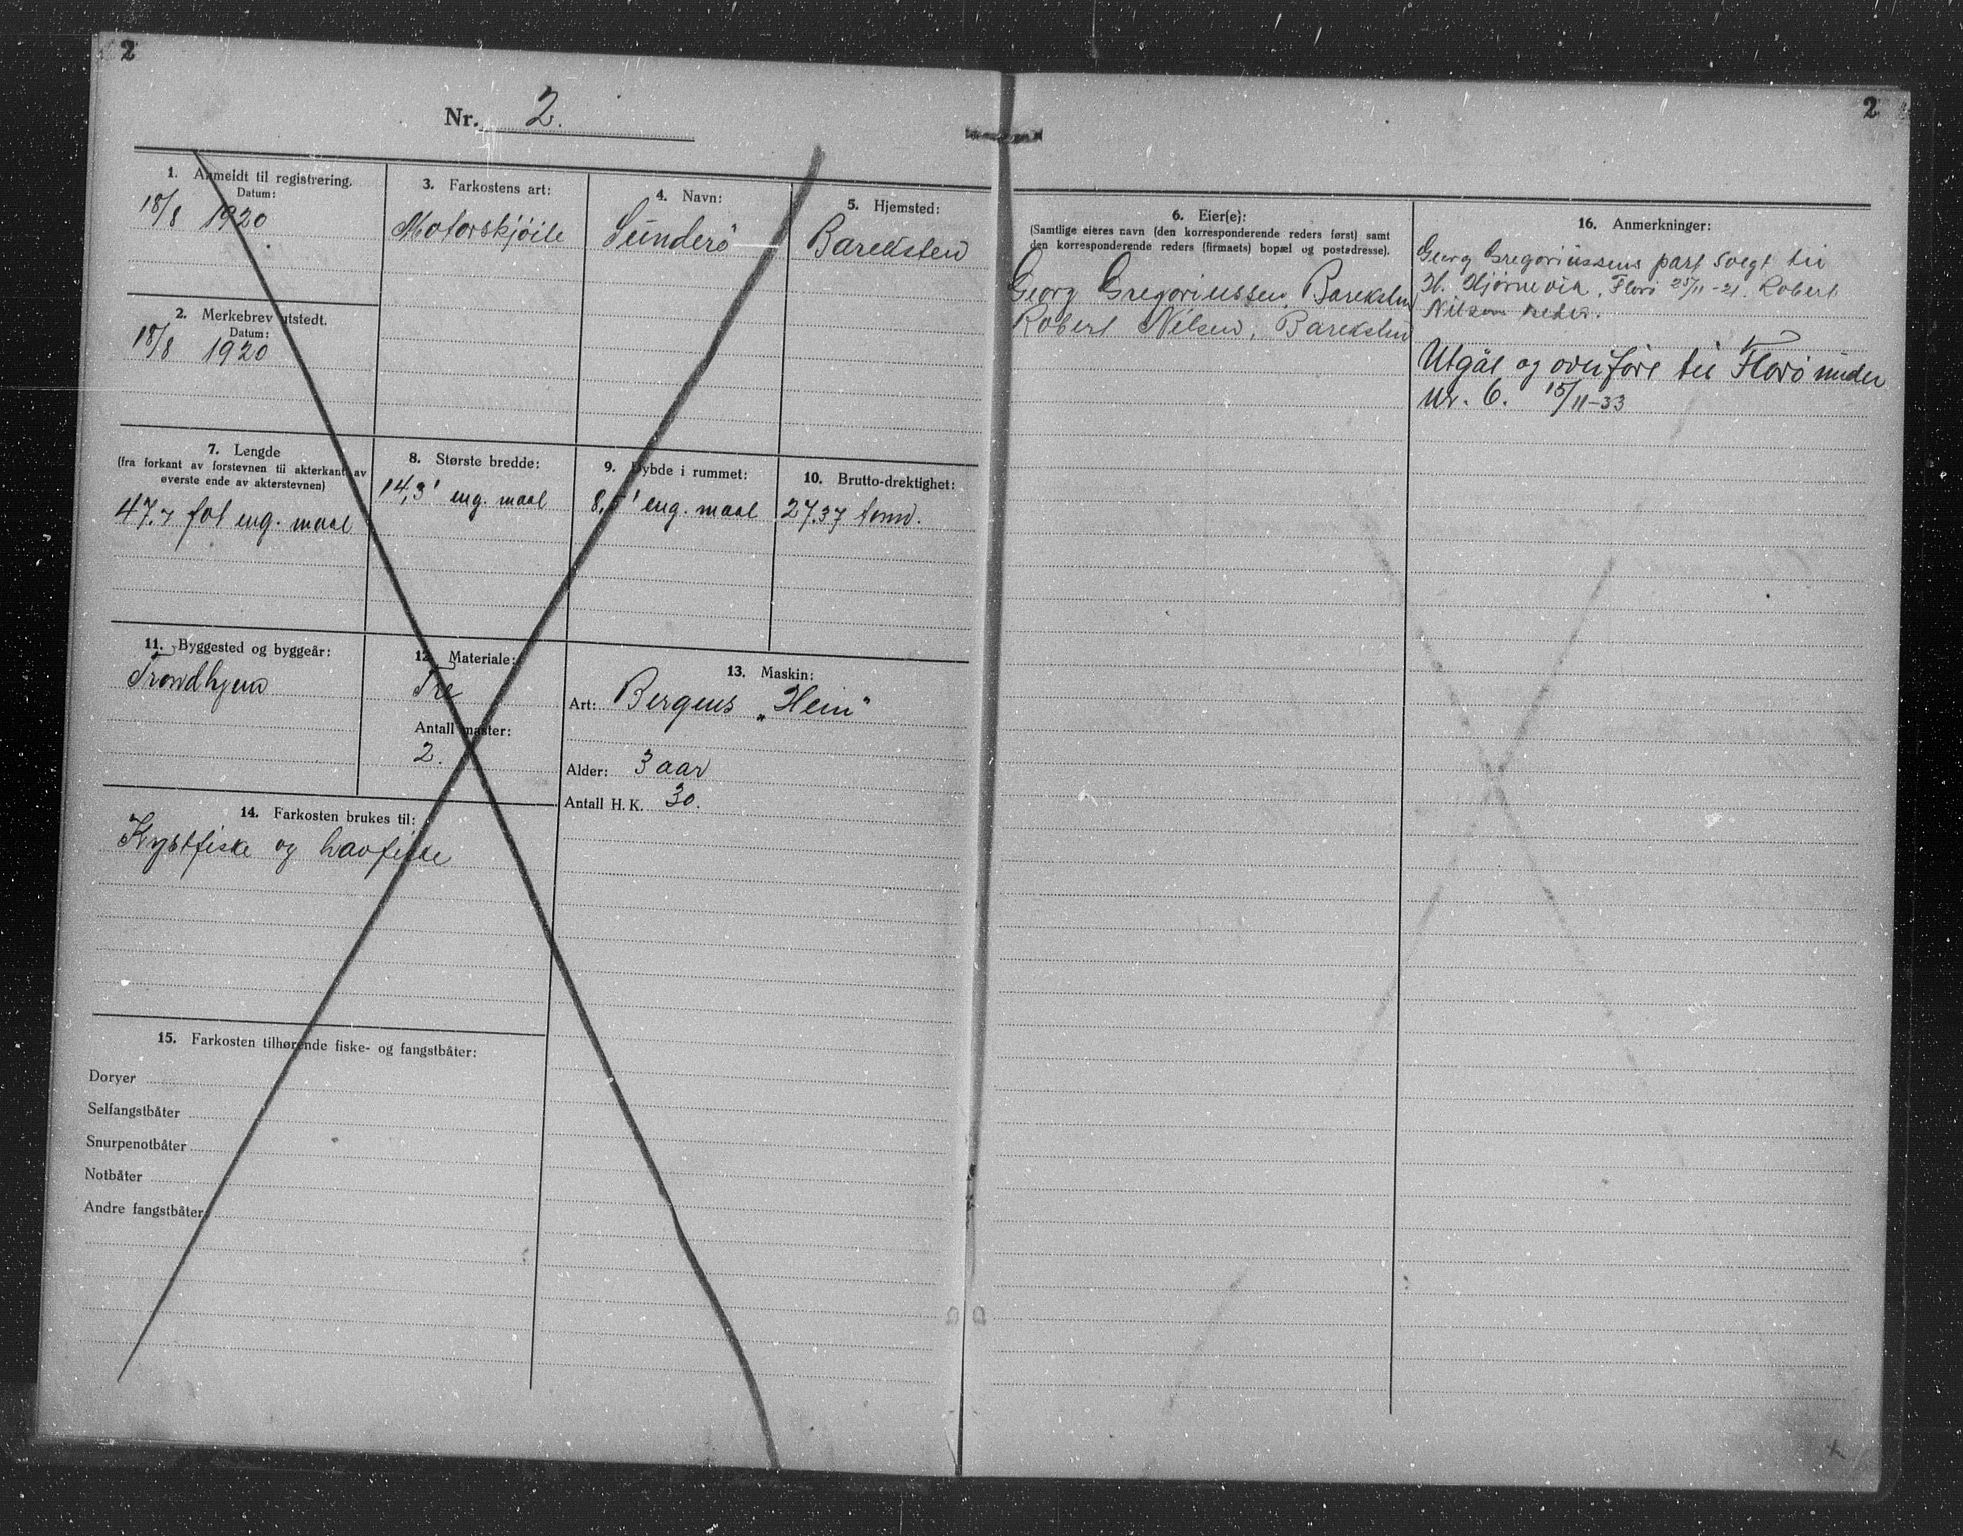 2
2
Nr. 2.
1. Anmeldt til registrering.
Datum:
18/8 1920
2. Merkebrev utstedt.
Datum:
18/8 1920
3. Farkostens art:
Motorskjöite
4. Navn:
Sunderö
5. Hjemsted:
Bareksten
6. Eier(e):
(Samtlige eieres navn (den korresponderende reders først) samt
den korresponderende reders (firmaets) bopæl og postadresse).
Georg Gregoriussen, Bareksten
Robert Nilsen, Bareksten
16. Anmerkninger:
Georg Gregoriussens part solgt til
H. Hjørnevik, Florö 25/11-21. Robert
Nilsen reder.
Utgåt og overført til Florö under
Nr. 6. 15/11-33
7. Lengde
(fra forkant av forstevnen til akterkant av
øverste ende av akterstevnen)
47.7 fot eng. maal
8. Største bredde:
14,3' eng. maal
9. Dybde i rummet:
8,5' eng. maal
10. Brutto-drektighet:
27.37 tonn.
11. Byggested og byggeår:
Trondhjem
12. Materiale:
Tre
Antall master:
2.
13. Maskin:
Art: Bergens „Hein"
Alder: 3 aar
Antall H. K. 30.
14. Farkosten brukes til:
Kystfiske og havfiske
15. Farkosten tilhørende fiske- og fangstbåter:
Doryer
Selfangstbåter
Snurpenotbåter
Notbåter
Andre fangstbåter